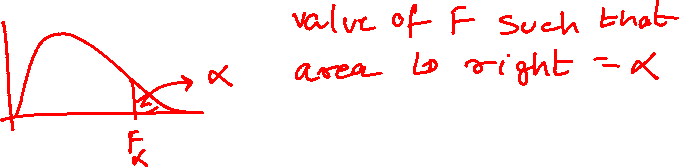 value of F such that
area to right = α
α
F
α